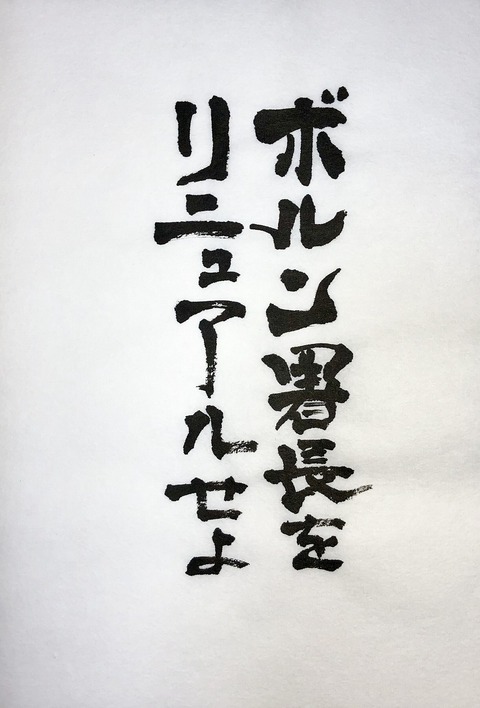 ボルン署長を
リニューアルせよ